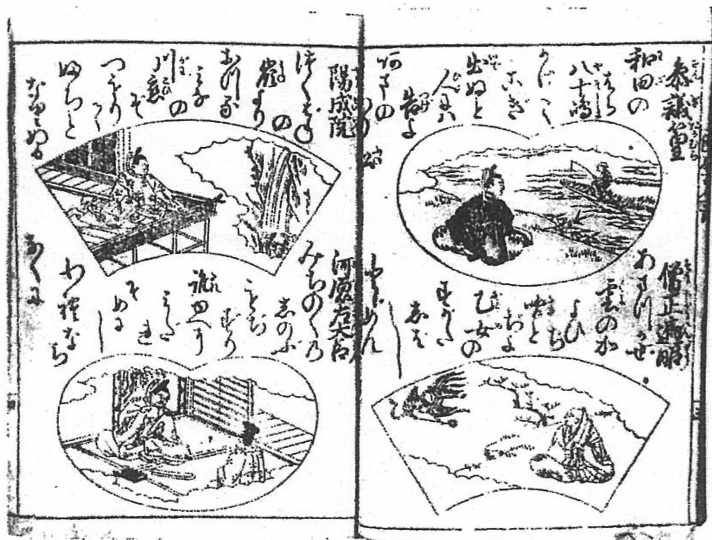 参議篁
和田の
はら
八十嶋
かけて
こぎ
出ぬと
人には
告よ
あまの
つり舩
僧正遍昭
あまつかぜ
雲のか
よひ
路と
ぢよ
乙女の
すがた
しばし
とゞめん
陽成院
つくばね
の
峯より
おつる
みな
の
川恋
ぞ
つもり
て
ふちと
なりぬる
河原左大臣
みちのくの
しのぶ
もぢ
ずり
誰ゆへに
みだ
れ
そめに
し
われなら
なくに